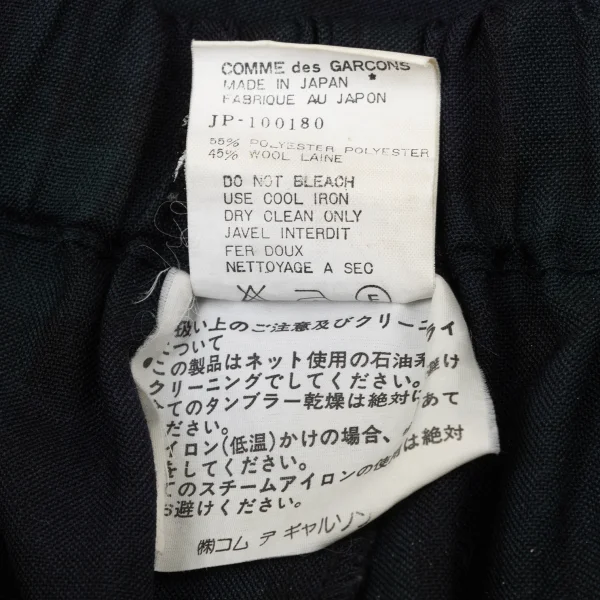 COMME des GARCONS
MADE IN JAPAN
FABRIQUE AU JAPON
JP-100180
55% POLYESTER POLYESTER
45% WOOL LAINE
DO NOT BLEACH
USE COOL IRON
DRY CLEAN ONLY
JAVEL INTERDIT
FER DOUX
NETTOYAGE A SEC
扱い上のご注意及びクリーニ
について
この製品はネット使用の石油系
クリーニングでしてください。
てのタンブラー乾燥は絶対にあて
ださい。
イロン(低温)かけの場合、
をしてください。
てのスチームアイロンの使用は絶対
お避けください。
㈱コム デ ギャルソン